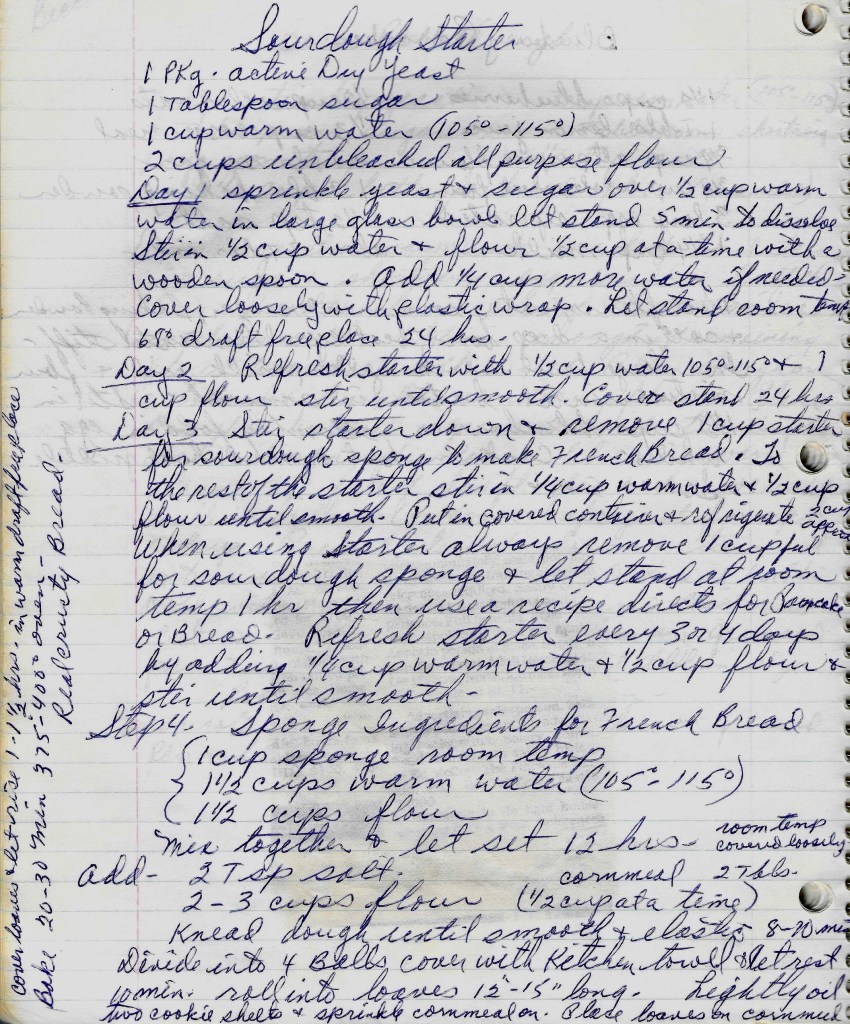 Sourdough Starter
1 Pkg. active Dry yeast
1 Tablespoon sugar
1 cup warm water (105° - 115°)
2 cups unbleached all purpose flour
Day 1 sprinkle yeast & sugar over 1/2 cup warm
water in large glass bowl let stand 5 min to dissolve
Stir in 1/2 cup water & flour 1/2 cup at a time with a
wooden spoon. add 1/4 cup more water if needed-
Cover loosely with plastic wrap. Let stand room temp
68° draft free place 24 hrs.
Day 2 Refresh starter with 1/2 cup water 105°-115° & 1
cup flour stir until smooth. Cover stand 24 hrs
Day 3 Stir starter down & remove 1 cup starter
for sourdough sponge to make French Bread. To
the rest of the starter stir in 1/4 cup warm water & 1/2 cup
flour until smooth. Put in covered container & refrigerate 2 cups
When using Starter always remove 1 cupful
for sourdough sponge & let stand at room
temp 1 hr then use a recipe directs for Pancake
or Bread. Refresh starter every 3 or 4 days
by adding 1/4 cup warm water & 1/2 cup flour &
stir until smooth-
Step 4. Sponge Ingredients for French Bread
1 cup sponge room temp
1 1/2 cups warm water (105° - 115°)
1 1/2 cups flour
Mix together & let set 12 hrs- room temp
covered loosely
add- 2 Tsp salt. cornmeal 2 Tbls.
2-3 cups flour (1/2 cup at a time)
Knead dough until smooth & elastic 8-10 min
Divide into 4 Balls cover with Kitchen towel & let rest
10 min. roll into loaves 12"-15" long. Lightly oil
two cookie sheets & sprinkle cornmeal on. Place loaves on cornmeal
cover loaves & let rise 1-1 1/2 hrs. in warm draft free place
Bake 20-30 min 375-400° oven-
Real crusty Bread-